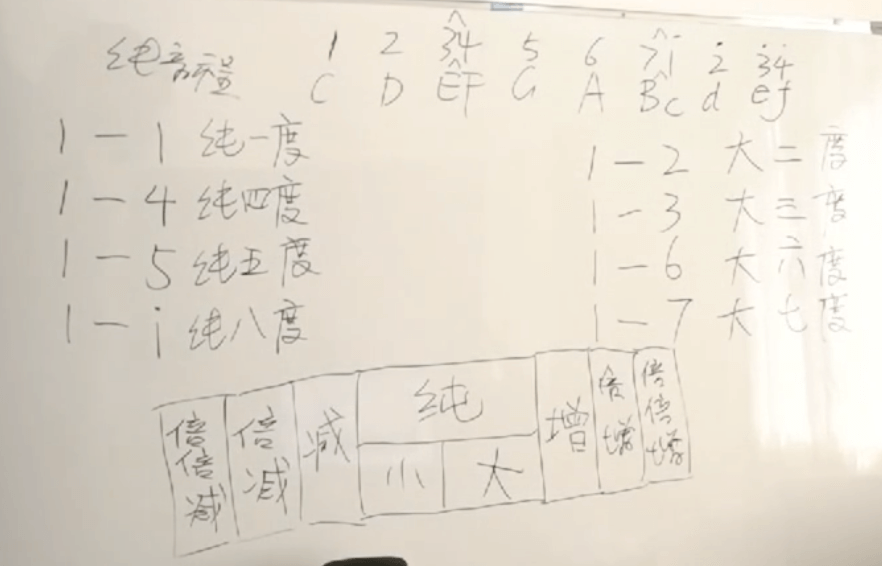 纯音程 1 2 34 5 6 7i 2̇ 3̇4̇
C D EF G A Bc d ef
1 — 1 纯一度
1 — 4 纯四度
1 — 5 纯五度
1 — i 纯八度
1 — 2 大二度
1 — 3 大三度
1 — 6 大六度
1 — 7 大七度
倍倍减 倍减 减 纯 增 倍增 倍倍增
小 大